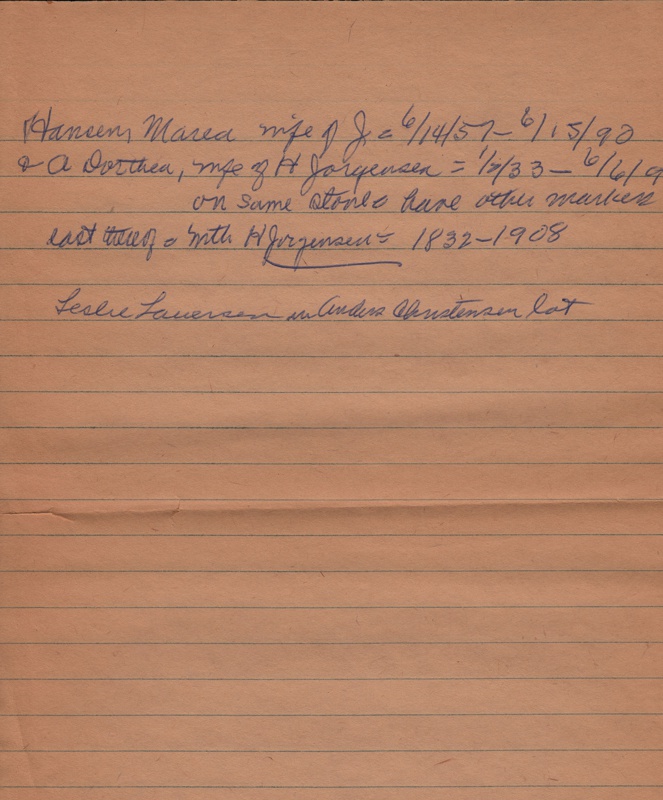 Hansen, Marea wife of J = 6/14/57 – 6/15/90
& A Dorthea, wife of H Jorgensen = 1/2/33 – 6/6/9
on same stone & have other markers
east thereof & with H Jorgensen = 1832–1908
Leslie Lauersen in Anders Christensen lot